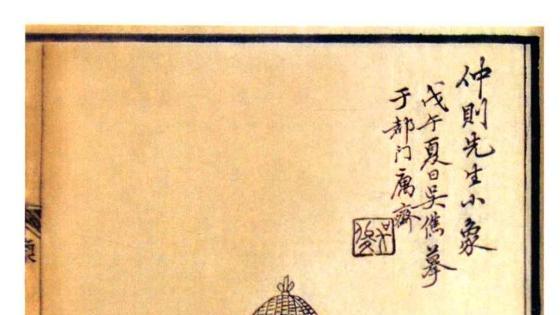 仲則先生小象
戊午夏日吳儁摹
于都门寓齋